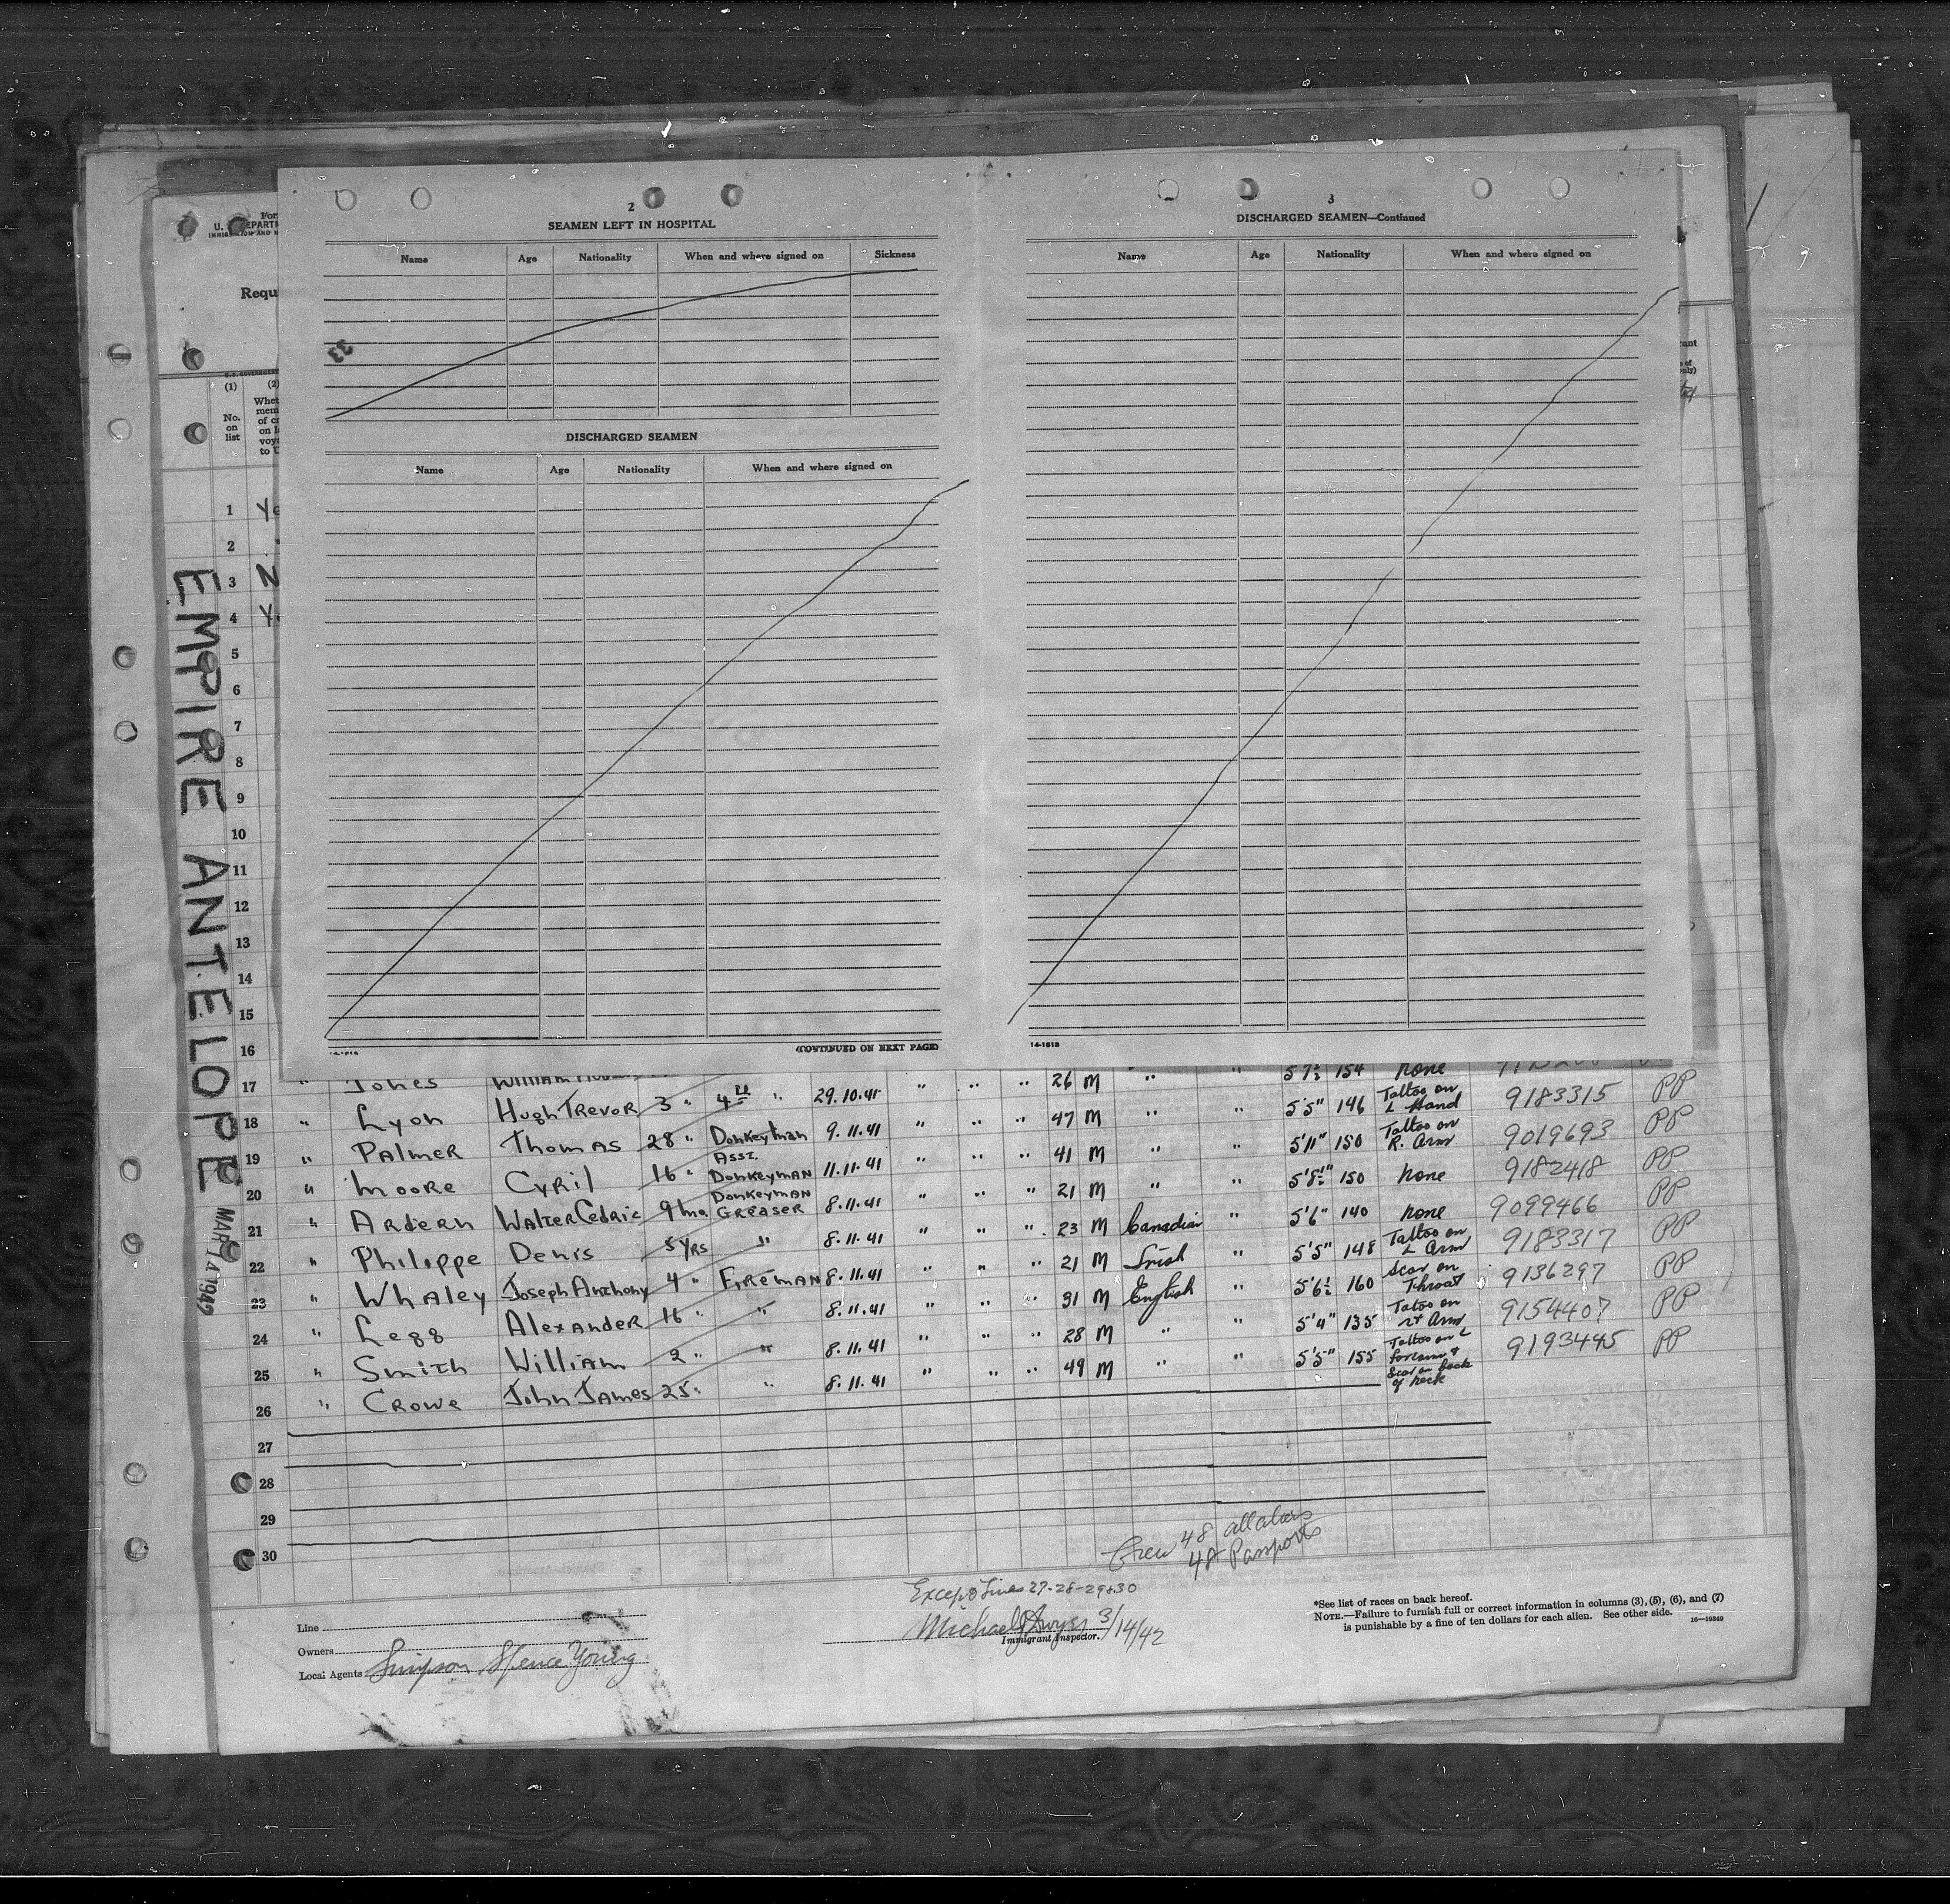 2
SEAMEN LEFT IN HOSPITAL
Name Age Nationality When and where signed on Sickness
33
DISCHARGED SEAMEN
Name Age Nationality When and where signed on
(CONTINUED ON NEXT PAGE)
3
DISCHARGED SEAMEN—Continued
Name Age Nationality When and where signed on
14-1618
U.
Requ
(1) (2)
No.
on
list
EMPIRE ANTELOPE MAR 14 1942
1
2
3
4
5
6
7
8
9
10
11
12
13
14
15
16
17 " Jones 26 M " " 5'7½ 154 none
18 " Lyon Hugh Trevor 3 " 4th " 29.10.41 " " " 47 M " " 5'5" 146 Tattoo on L Hand 9183315 PP
19 " Palmer Thomas 28 " Donkeyman 9.11.41 " " " 41 M " " 5'11" 150 Tattoo on R. Arm 9019693 PP
20 " Moore Cyril 16 " Asst. Donkeyman 11.11.41 " " " 21 M " " 5'8½" 150 none 9182418 PP
21 " Ardern Walter Cedric 9 mo. Donkeyman Greaser 8.11.41 " " " 23 M Canadian " 5'6" 140 none 9099466 PP
22 " Philippe Denis 5 yrs " 8.11.41 " " " 21 M Irish " 5'5" 148 Tattoo on L Arm 9183317 PP
23 " Whaley Joseph Anthony 4 " Fireman 8.11.41 " " " 31 M English " 5'6½ 160 Scar on Throat 9136297 PP
24 " Legg Alexander 16 " " 8.11.41 " " " 28 M " " 5'4" 135 Tatoo on rt Arm 9154407 PP
25 " Smith William 2 " " 8.11.41 " " " 49 M " " 5'5" 155 Tattoo on L forearm & Scar on back of neck 9193445 PP
26 " Crowe John James 25 " " 8.11.41
27
28
29
30
Crew 48 all aliens
48 Passports
Except Lines 27-28-29&30
Michael J Dwyer 3/14/42
Immigrant Inspector.
Line
Owners
Local Agents Simpson Spence Young
*See list of races on back hereof.
NOTE.—Failure to furnish full or correct information in columns (3), (5), (6), and (7)
is punishable by a fine of ten dollars for each alien. See other side. 16—19349